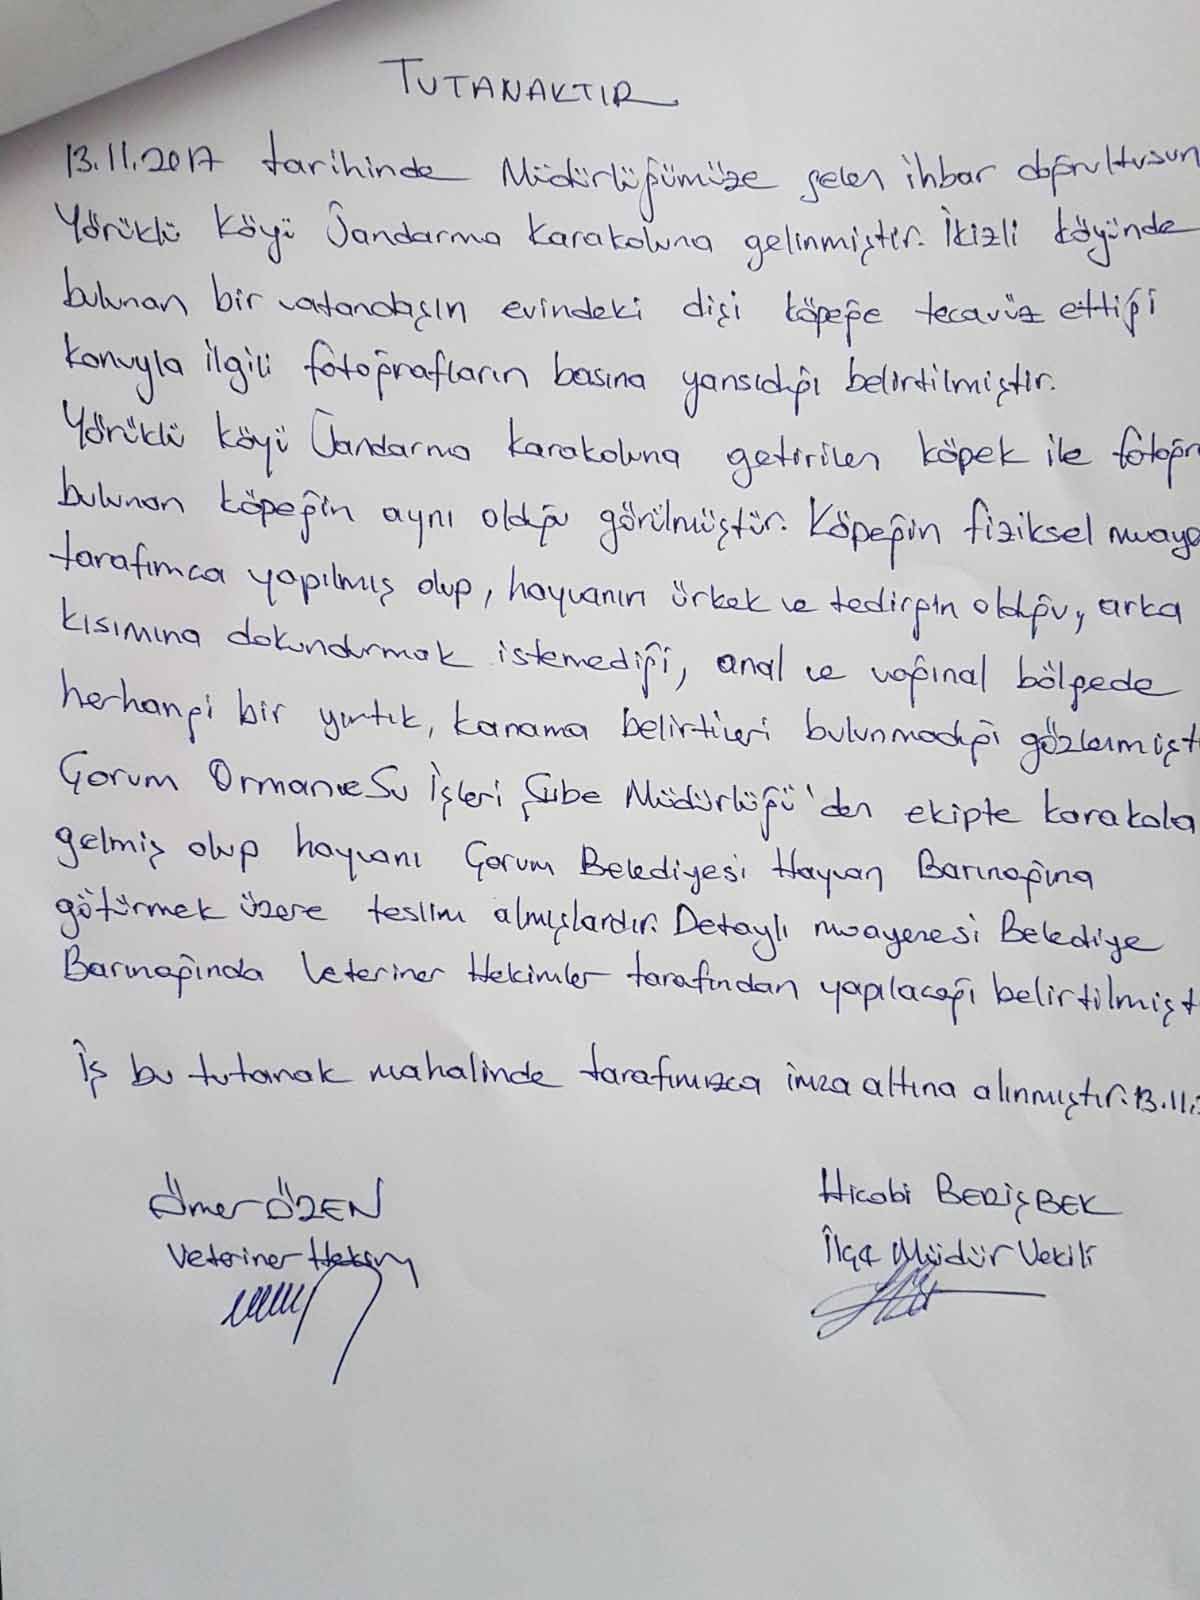 TUTANAKTIR
13.11.2017 tarihinde Müdürlüğümüze gelen ihbar doğrultusun
Yörüklü Köyü Jandarma Karakoluna gelinmiştir. İkizli köyünde
bulunan bir vatandaşın evindeki dişi köpeğe tecavüz ettiği
konuyla ilgili fotoğrafların basına yansıdığı belirtilmiştir.
Yörüklü Köyü Jandarma Karakoluna getirilen köpek ile fotoğr
bulunan köpeğin aynı olduğu görülmüştür. Köpeğin fiziksel muaye
tarafımca yapılmış olup, hayvanın ürkek ve tedirgin olduğu, arka
kısımına dokundurmak istemediği, anal ve vağınal bölgede
herhangi bir yırtık, kanama belirtileri bulunmadığı gözlenmişt
Çorum Orman ve Su İşleri Şube Müdürlüğü'den ekipte karakola
gelmiş olup hayvanı Çorum Belediyesi Hayvan Barınağına
götürmek üzere teslim almışlardır. Detaylı muayenesi Belediye
Barınağında Veteriner Hekimler tarafından yapılacağı belirtilmişt
İş bu tutanak mahalinde tarafımızca imza altına alınmıştır. 13.11.
Ömer ÖZEN
Hicabi BERİŞBEK
Veteriner Hekim
İlçe Müdür Vekili